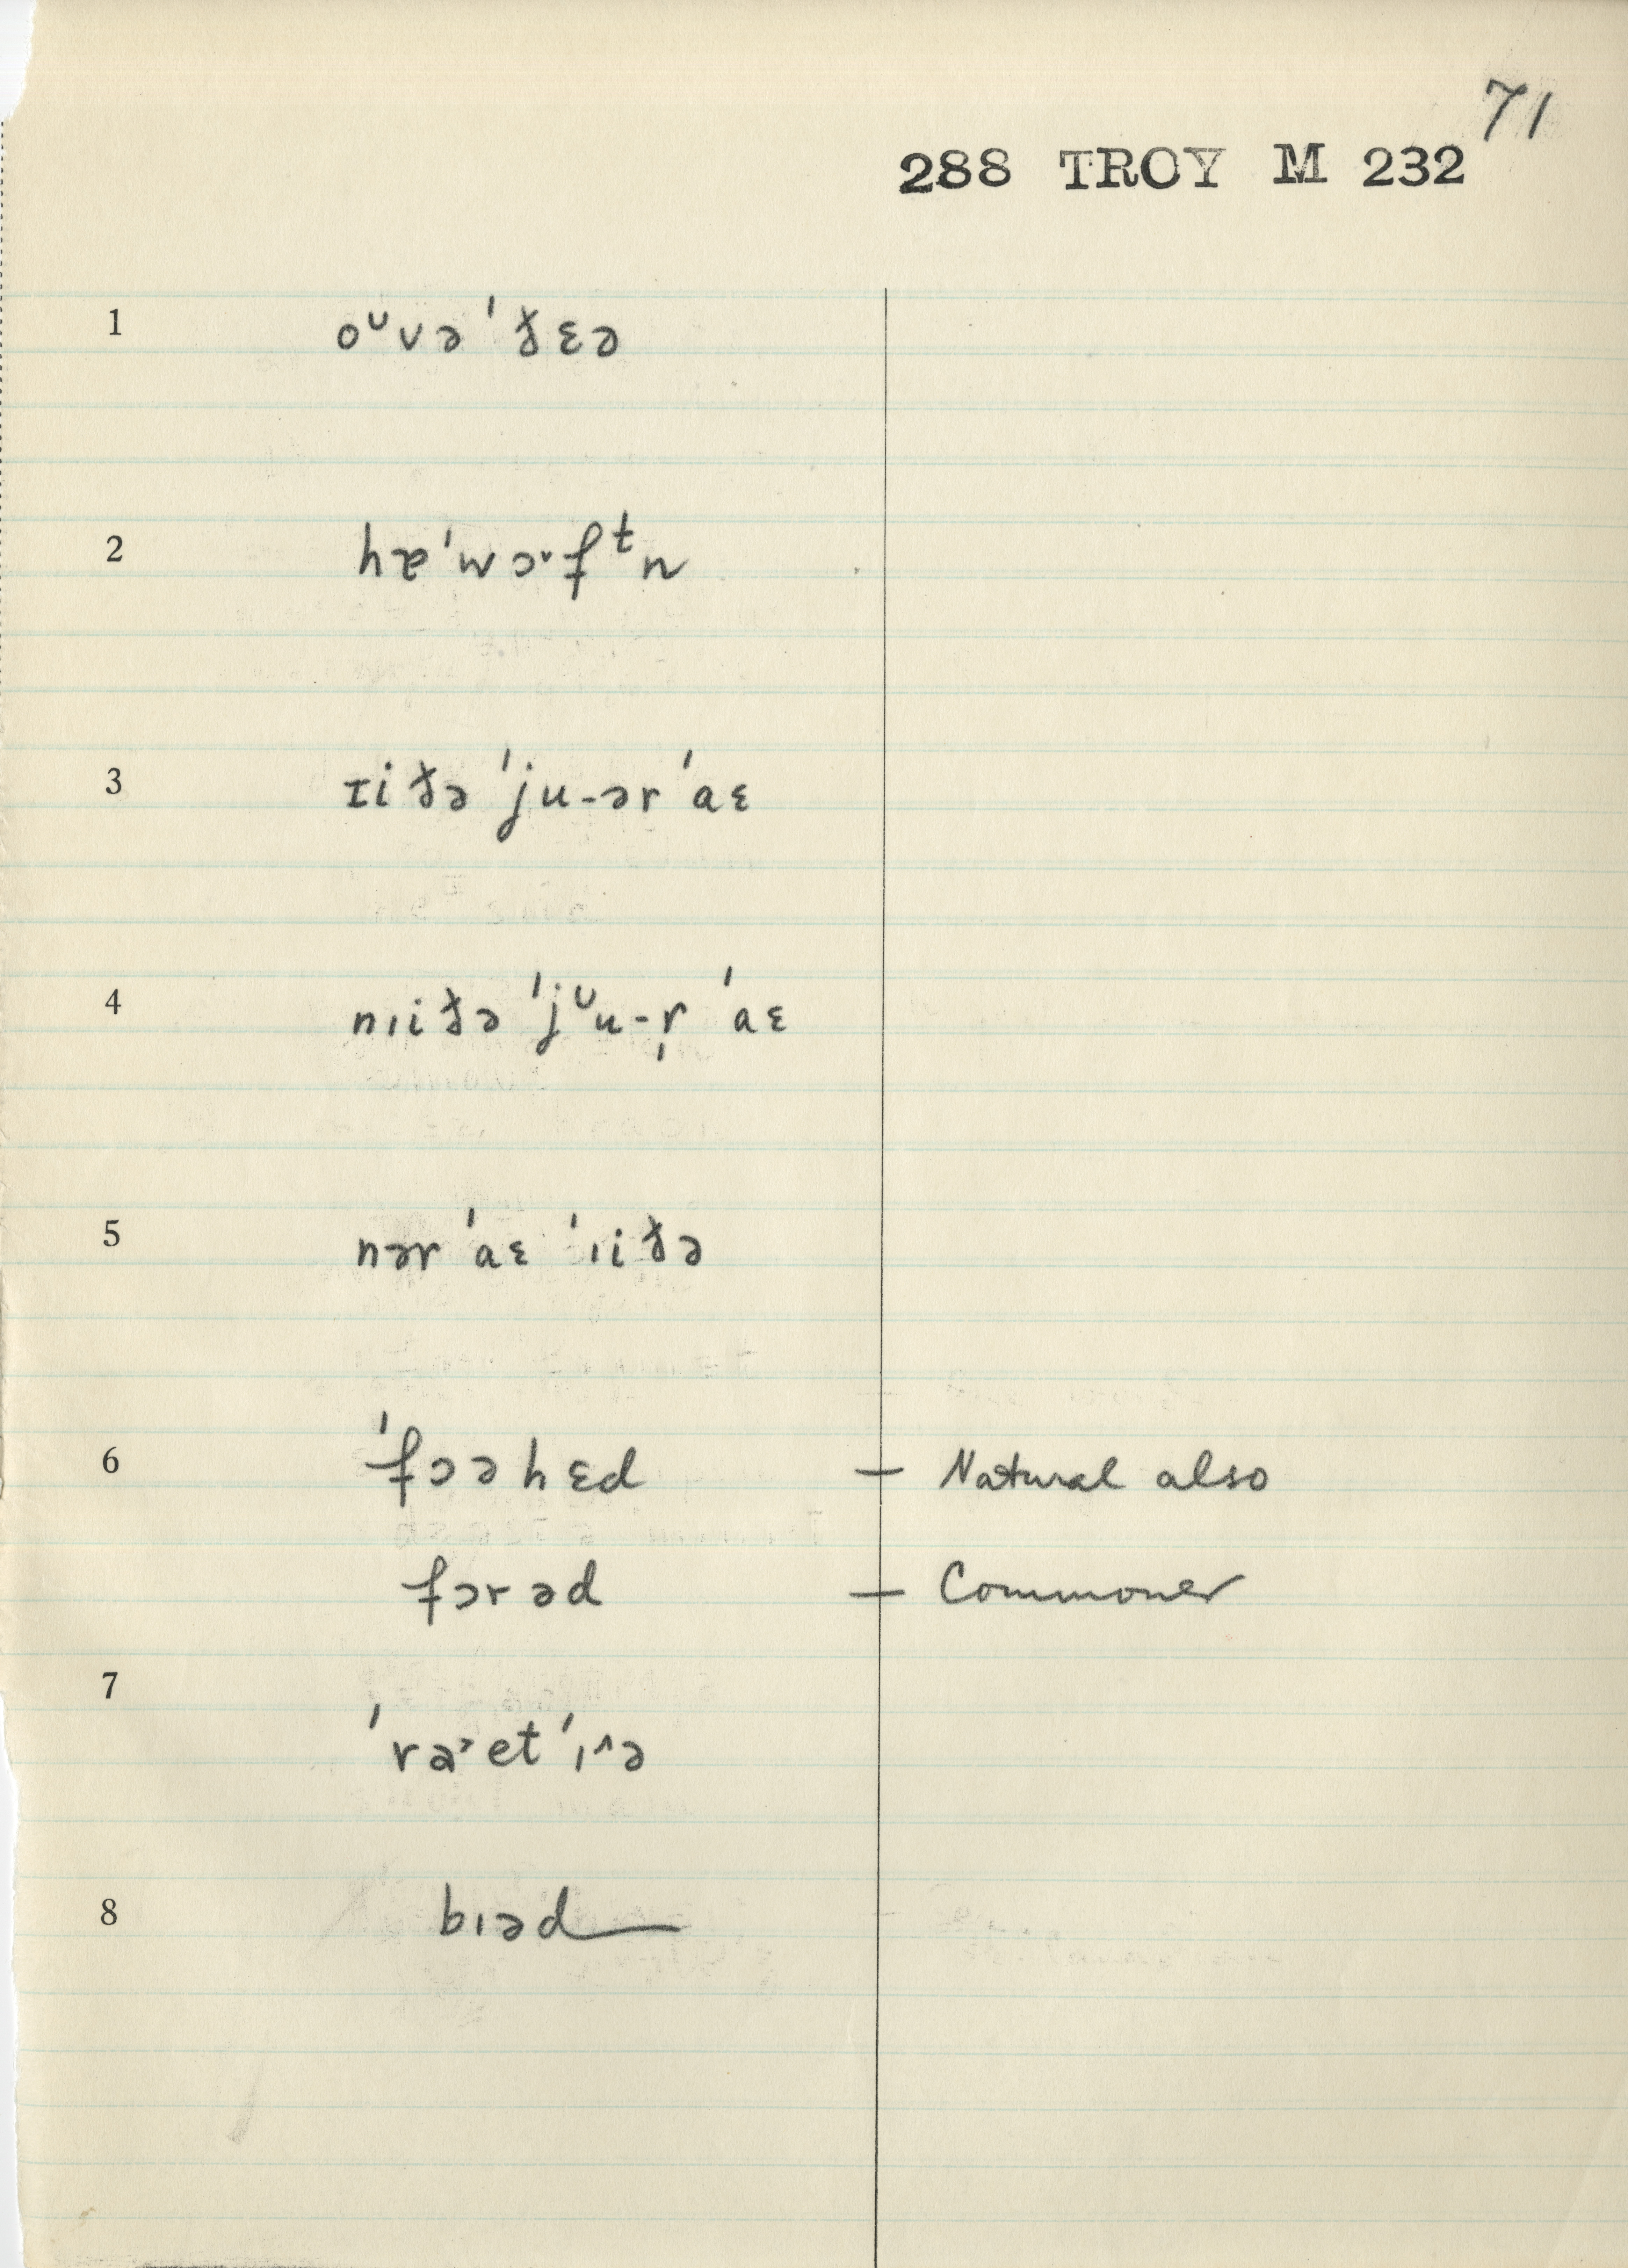 71
288 TROY M 232
1 oᶷvə ˈðɛə
2 hɐˈwɔ˞fᵗn
3 ɪiðə ˈju-ər ˈaɛ
4 nıiðə ˈjᶷu-r̩ ˈaɛ
5 nər ˈaɛ ˈıiðə
6 ˈfɔəhɛd – Natural also
fɔrəd – Commoner
7 ˈrɑ˃etˈı^ə
8 bıəd